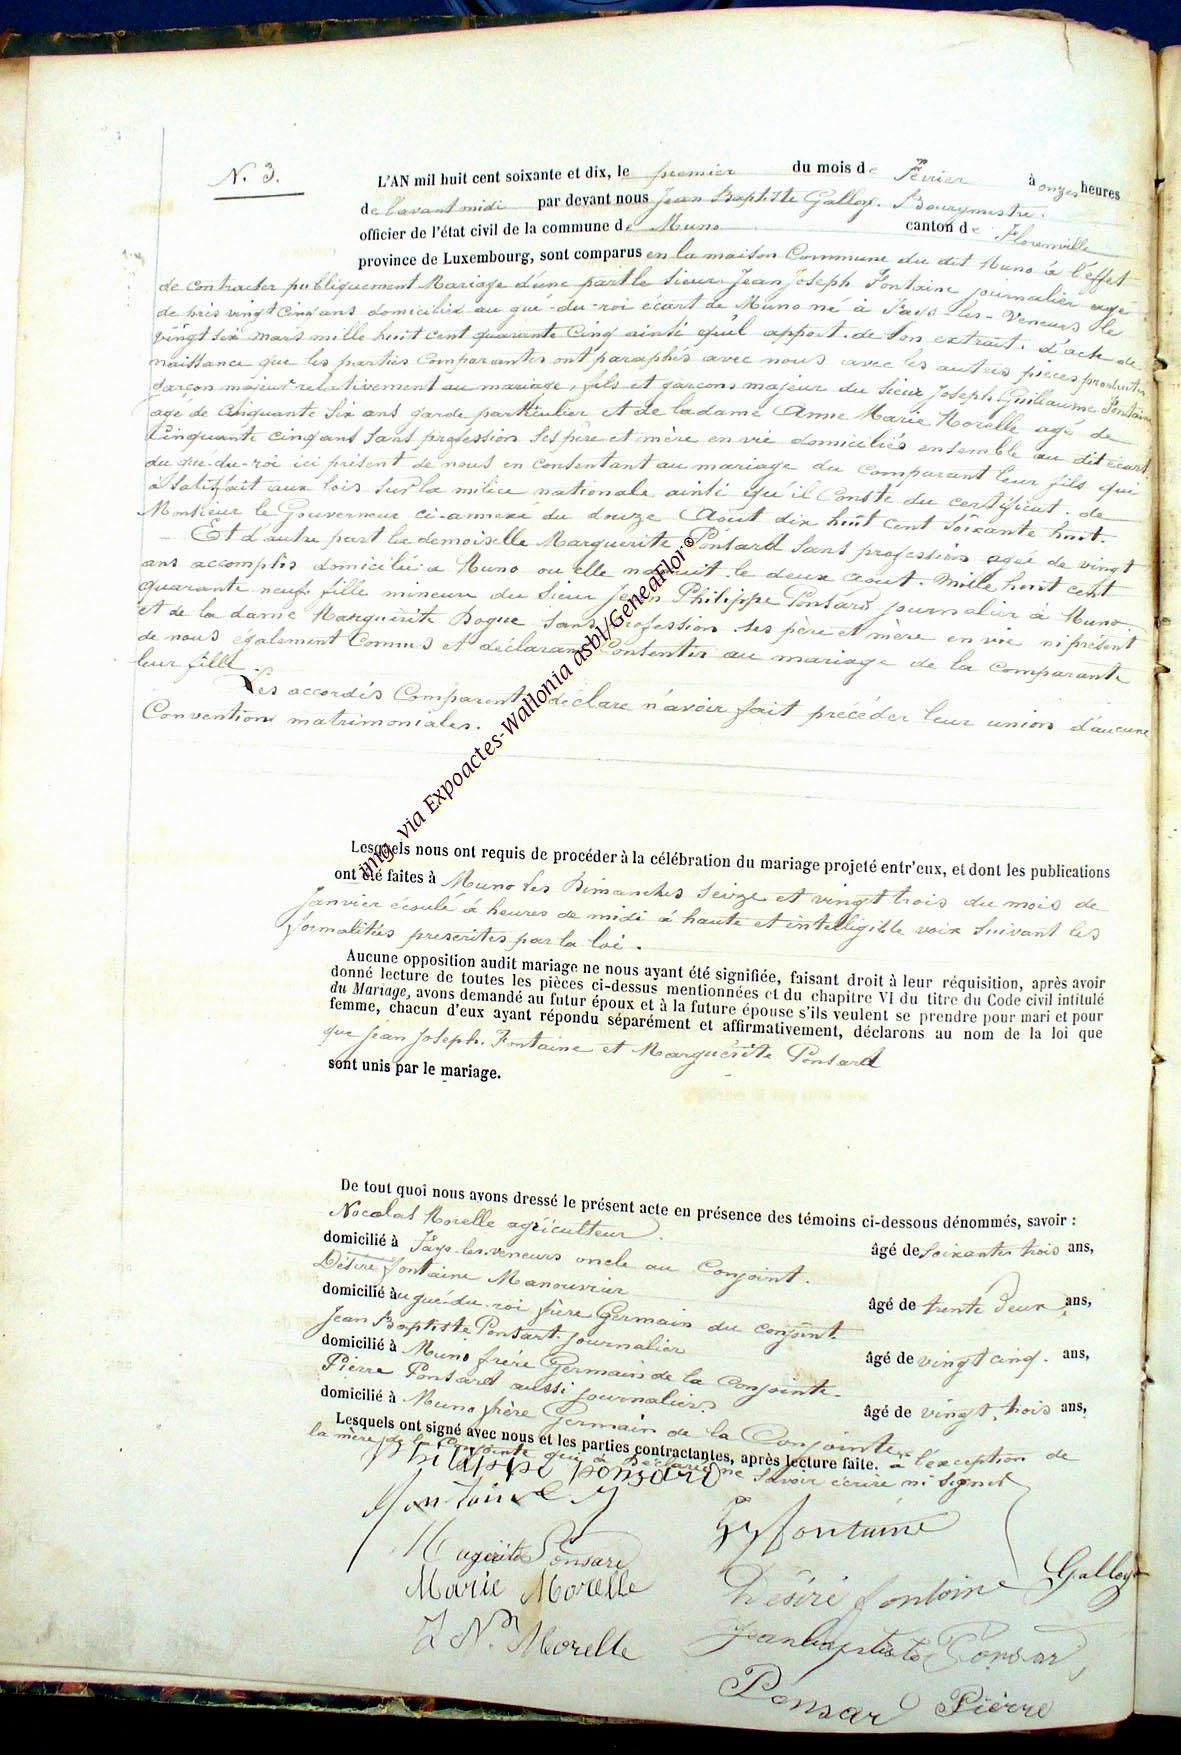 N. 3.
L'AN mil huit cent soixante et dix, le premier du mois de Fevrier à onze heures
de l'avant midi par devant nous Jean Baptiste Galloy. Bourgmestre.
officier de l'état civil de la commune de Muno canton de Florenville
province de Luxembourg, sont comparus en la maison Commune du dit Muno à l'effet
de contracter publiquement Mariage d'une part le sieur Jean Joseph Fontaine journalier agé
de près vingt cinq ans domicilié au gué-du-roi ecart de Muno né à Fays-les-Veneurs le
vingt six mars mille huit cent quarante cinq ainsi qu'il apport. de son extrait. d'acte de
naissance que les parties comparantes ont paraphés avec nous avec les autres pièces produites
garçon majeur relativement au mariage, fils et garcons majeur du sieur Joseph Guillaume Fontaine
agé de cinquante six ans garde particulier et de la dame Anne Marie Morelle agé de
Cinquante cinq ans sans profession ses père et mère en vie domiciliés ensemble au dit écart
du gué-du-roi ici présent de nous en consentant au mariage du comparant leur fils qui
a satisfait aux lois sur la milice nationale ainsi qu'il Conste du certificat. de
Monsieur le Gouverneur ci-annexé du douze Août dix huit cent soixante huit.
Et d'autre part la demoiselle Marguerite Ponsard sans profession agée de vingt
ans accomplis domicilié a Muno ou elle naquit le deux Aout. Mille huit cent
quarante neuf. fille mineure du Sieur Jean Philippe Ponsard journalier à Muno
et de la dame Marguerite Boque sans profession ses père et mère en vie ni présent
de nous également Connus et déclarant Consentir au mariage de la comparante
leur fille.
Les accordés Comparents déclare n'avoir fait précéder leur union d'aucune
Conventions matrimoniales.
img. via Expoactes-Wallonia asbl/GeneaFlor®
Lesquels nous ont requis de procéder à la célébration du mariage projeté entr'eux, et dont les publications
ont été faites à Muno les Dimanches seize et vingt trois du mois de
Janvier écoulé à heures de midi à haute et intelligible voix suivant les
formalités prescrites par la loi.
Aucune opposition audit mariage ne nous ayant été signifiée, faisant droit à leur réquisition, après avoir
donné lecture de toutes les pièces ci-dessus mentionnées et du chapitre VI du titre du Code civil intitulé
du Mariage, avons demandé au futur époux et à la future épouse s'ils veulent se prendre pour mari et pour
femme, chacun d'eux ayant répondu séparément et affirmativement, déclarons au nom de la loi que
que Jean Joseph. Fontaine et Marguerite Ponsard
sont unis par le mariage.
De tout quoi nous avons dressé le présent acte en présence des témoins ci-dessous dénommés, savoir :
Nocolas Morelle agriculteur.
domicilié à Fays-les-veneurs oncle au Conjoint. âgé de soixante trois ans,
Désiré fontaine Manouvrier
domicilié au gué-du-roi frère Germain du conjoint. âgé de trente deux ans,
Jean Baptiste Ponsart journalier
domicilié à Muno frère Germain de la Conjointe. âgé de vingt cinq. ans,
Pierre Ponsard aussi journaliers
domicilié à Muno frère Germain de la Conjointe. âgé de vingt. trois ans,
Lesquels ont signé avec nous et les parties contractantes, après lecture faite. à l'éxception de
la mère de la Conjointe qui a déclaré ne savoir écrire ni signer
philippe ponsard
fontaine
fontaine
Magerite Ponsard
Marie Morelle
Désiré fontaine
Galloy
J N. Morelle
Jeanbaptiste Ponsard
Ponsard Pièrre